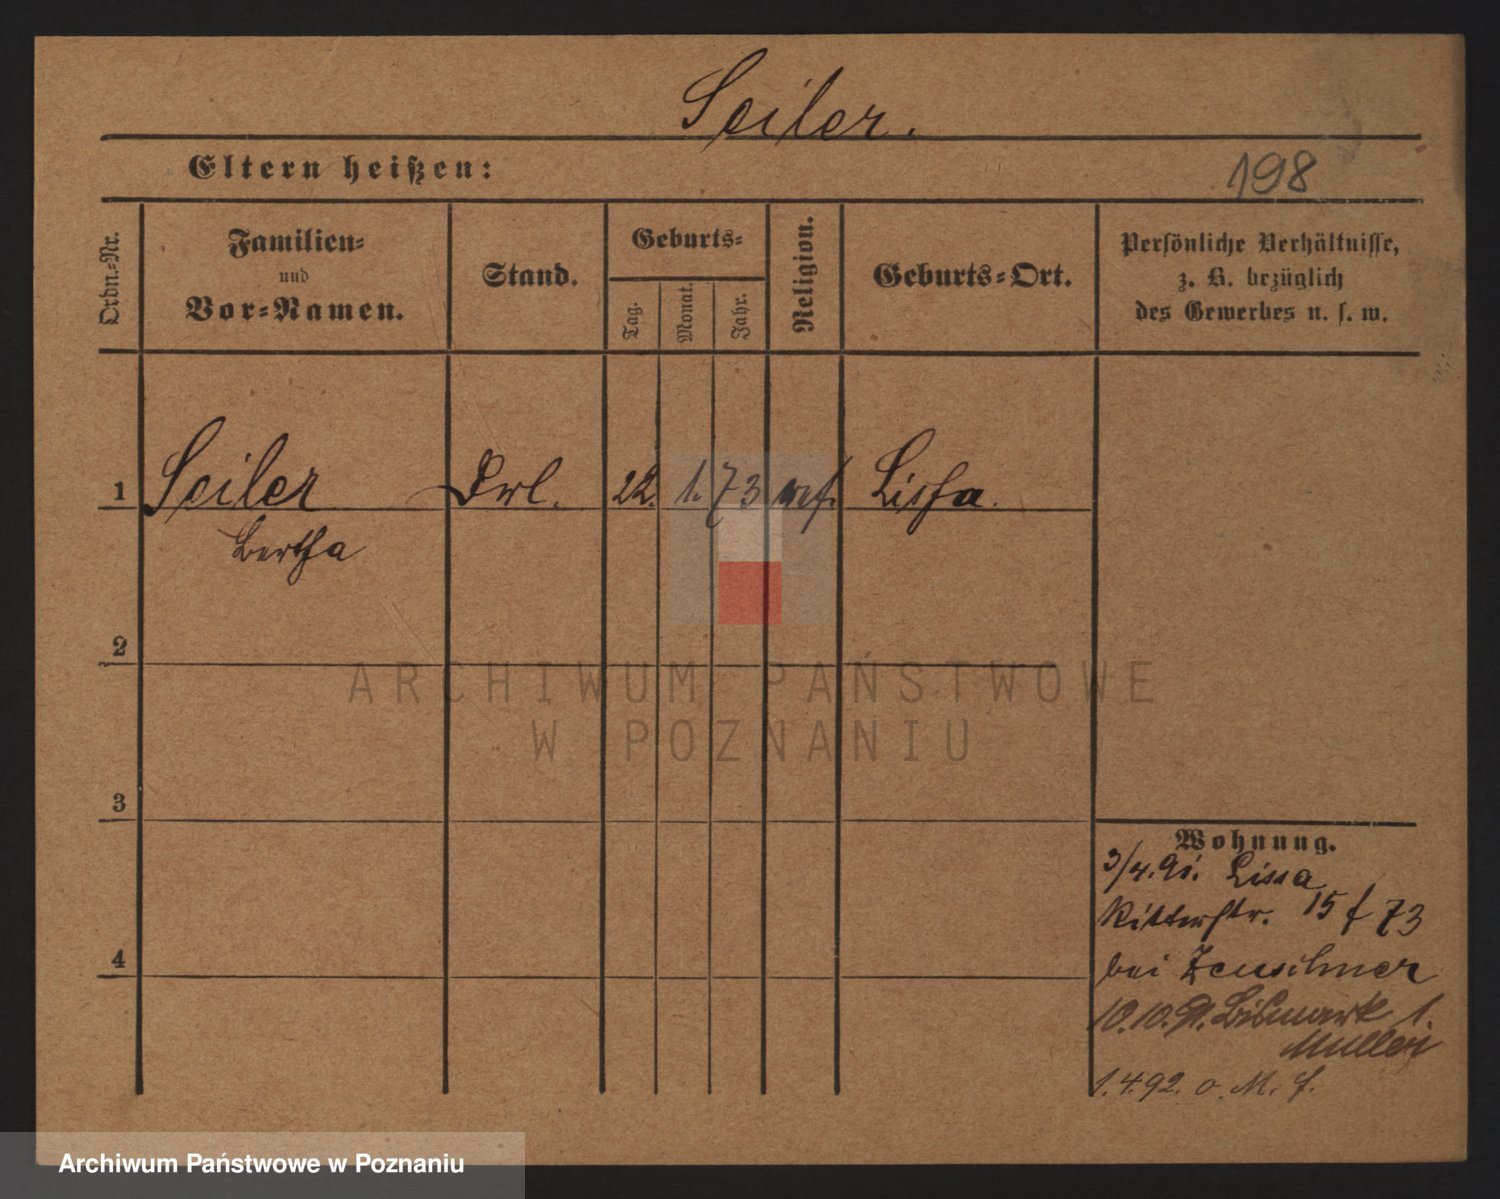 Seiler.
Eltern heißen:
198
Ordn.-Nr.
Familien-
und
Vor-Namen.
Stand.
Geburts-
Tag.
Monat.
Jahr.
Religion.
Geburts-Ort.
Persönliche Verhältnisse,
z. B. bezüglich
des Gewerbes u. s. w.
1 Seiler 22. 1. 73 Lissa.
Bertha
2
ARCHIWUM PAŃSTWOWE
W POZNANIU
3
Wohnung.
3/4.91. Lissa
Ritterstr. 15 f 73
4
bei Zeuschner
10.10.91. Bismark 1.
1.4.92. o. M. f.
Archiwum Państwowe w Poznaniu